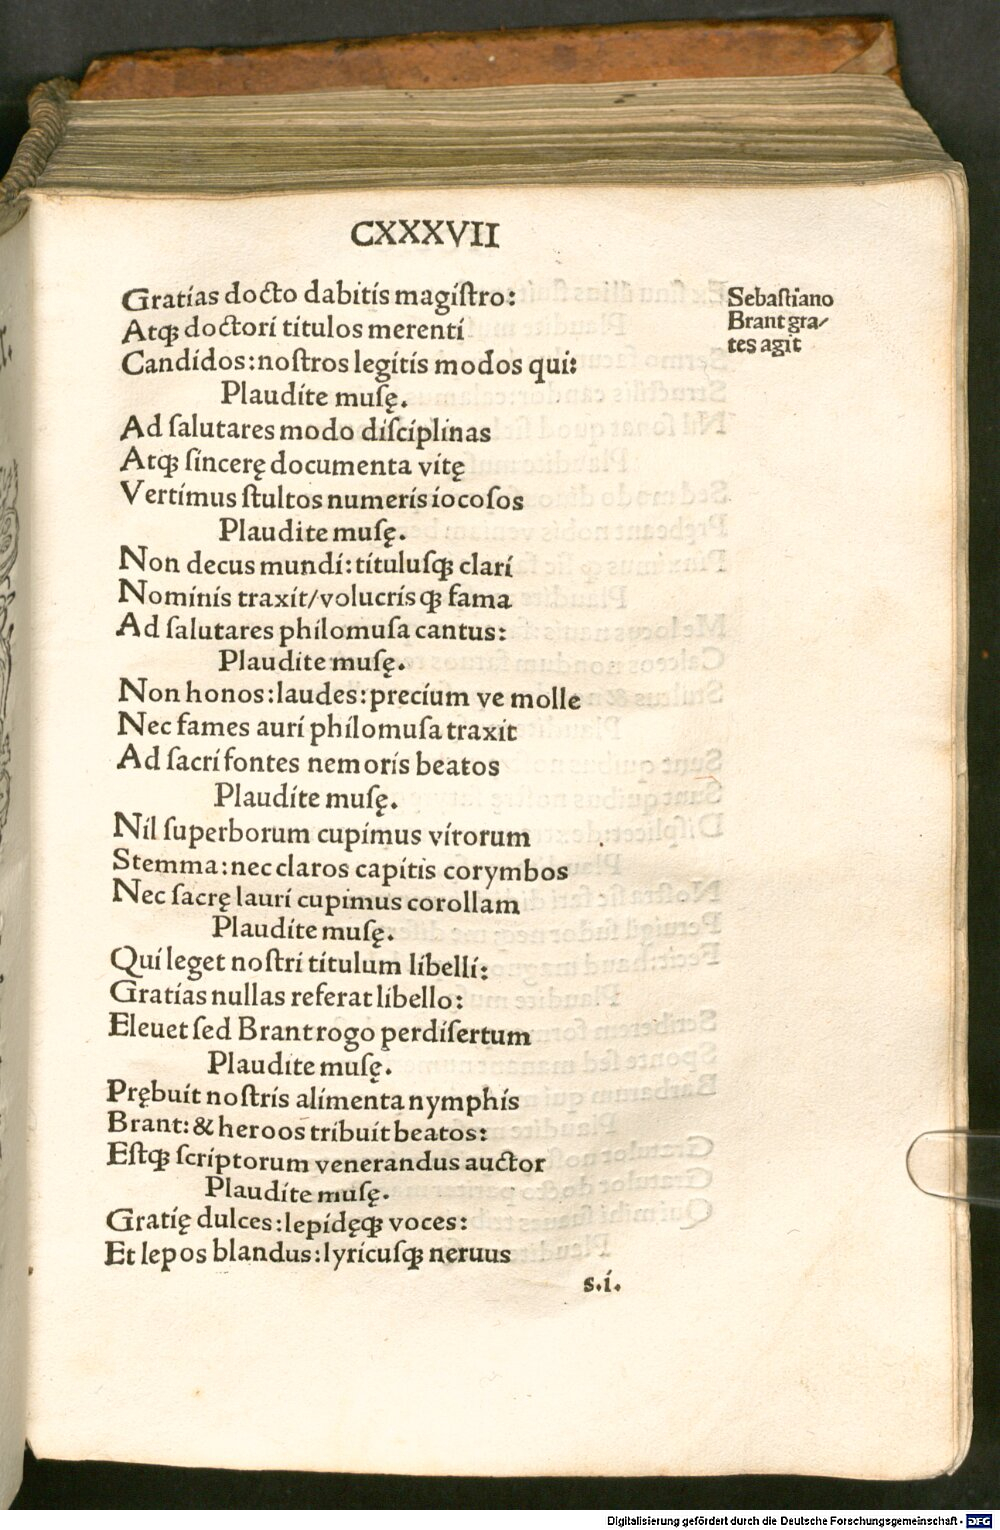 CXXXVII
Gratias docto dabitis magiſtro:
Atqꝫ doctori titulos merenti
Candidos: noſtros legitis modos qui:
Plaudite muſę.
Ad ſalutares modo diſciplinas
Atqꝫ ſincerę documenta vitę
Vertimus ſtultos numeris iocoſos
Plaudite muſę.
Non decus mundi: tituluſqꝫ clari
Nominis traxit/volucrisqꝫ fama
Ad ſalutares philomuſa cantus:
Plaudite muſę.
Non honos: laudes: precium ve molle
Nec fames auri philomuſa traxit
Ad ſacri fontes nemoris beatos
Plaudite muſę.
Nil ſuperborum cupimus virorum
Stemma: nec claros capitis corymbos
Nec ſacrę lauri cupimus corollam
Plaudite muſę.
Qui leget noſtri titulum libelli:
Gratias nullas referat libello:
Eleuet ſed Brant rogo perdiſertum
Plaudite muſę.
Prębuit noſtris alimenta nymphis
Brant: & heroos tribuit beatos:
Eſtqꝫ ſcriptorum venerandus auctor
Plaudite muſę.
Gratię dulces: lepidęqꝫ voces:
Et lepos blandus: lyricuſqꝫ neruus
s.i.
Sebaſtiano
Brant gra/
tes agit
Digitalisierung gefördert durch die Deutsche Forschungsgemeinschaft - DFG